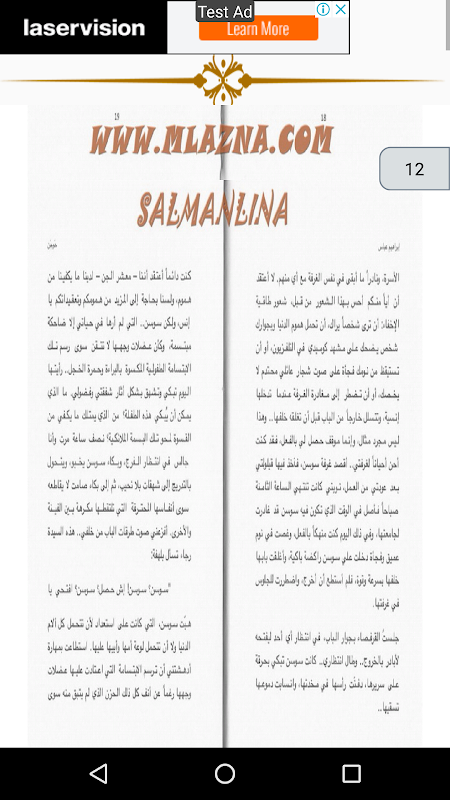 laservision
Test Ad
Learn More
12
18
19
WWW.MLAZNA.COM
SALMANLINA
إبراهيم عباس
الأسرة. ونادراً ما أبقى في نفس الغرفة مع أي منهم. لا أعتقد
أن أياً منكم أحس بهذا الشعور من قبل، شعور طاقية
الإخفاء: أن ترى شخصاً يراك، أن تحمل هموم الدنيا وبجوارك
شخص يضحك على مشهد كوميدي في التلفزيون، أو أن
تستيقظ من نومك فجأة على صوت شجار عائلي محتدم لا
يخصك، أو أن تضطر إلى مغادرة الغرفة عندما تدخلها
إنسية، وتتسلل خارجاً من الباب قبل أن تغلقه خلفها.. وهذا
ليس مجرد مثال، وإنما موقف حصل لي بالفعل، فقد كنت
أحن أحياناً لغرفتي.. أقصد غرفة سوسن، فآخذ فيها قيلولتي
بعد عودتي من العمل، نوبتي كانت تنتهي الساعة الثامنة
صباحاً فأصل في الوقت الذي تكون فيه سوسن قد غادرت
لجامعتها، وفي ذلك اليوم كنت منهكاً بالفعل، وغصت في نوم
عميق وفجأة دخلت علي سوسن راكضة باكية، وأغلقت بابها
خلفها بسرعة وقوة، فلم أستطع أن أخرج، واضطررت للجلوس
في غرفتها.
جلستُ القرفصاء بجوار الباب، في انتظار أي أحد ليفتحه
لأبادر بالخروج.. وطال انتظاري.. كانت سوسن تبكي بحرقة
على سريرها، دفنت رأسها في مخدتها، وانسابت دموعها
تسقيها..
حوجن
كنت دائماً أعتقد أننا – معشر الجن – لدينا ما يكفينا من
هموم، ولسنا بحاجة إلى المزيد من همومكم وتعقيداتكم يا
إنس، ولكن سوسن.. التي لم أرها في حياتي إلا ضاحكة
مبتسمة، وكأن عضلات وجهها لا تتقن سوى رسم تلك
الابتسامة الطفولية المكسوة بالبراءة وبحمرة الخجل.. رأيتها
اليوم تبكي وتشهق بشكل أثار شفقتي وفضولي. ما الذي
يمكن أن يُبكي هذه الطفلة! من الذي يمتلك ما يكفي من
القسوة لمحو تلك البسمة الملائكية! نصف ساعة مرت وأنا
جالس في انتظار الفرج، وبكاء سوسن يخبو، ويتحول
بالتدريج إلى شهقات بلا نحيب، ثم إلى بكاء صامت لا يقاطعه
سوى أنفاسها المحترقة التي تلتقطها مكرهة بين الفينة
والأخرى. أفزعتني صوت طرقات الباب من خلفي.. هذه السيدة
رجاء تسأل بلهفة:
"سوسن؟ سوسن! إش حصل! سوسن؟ افتحي يا
هبّت سوسن، التي كانت على استعداد لأن تتحمل كل آلام
الدنيا ولا أن تتحمل لوعة أمها وأبيها عليها. استطاعت بمهارة
أدهشتني أن ترسم الابتسامة التي اعتادت عليها عضلات
وجهها رغماً عن أنف كل ذاك الحزن الذي لم يتبق منه سوى